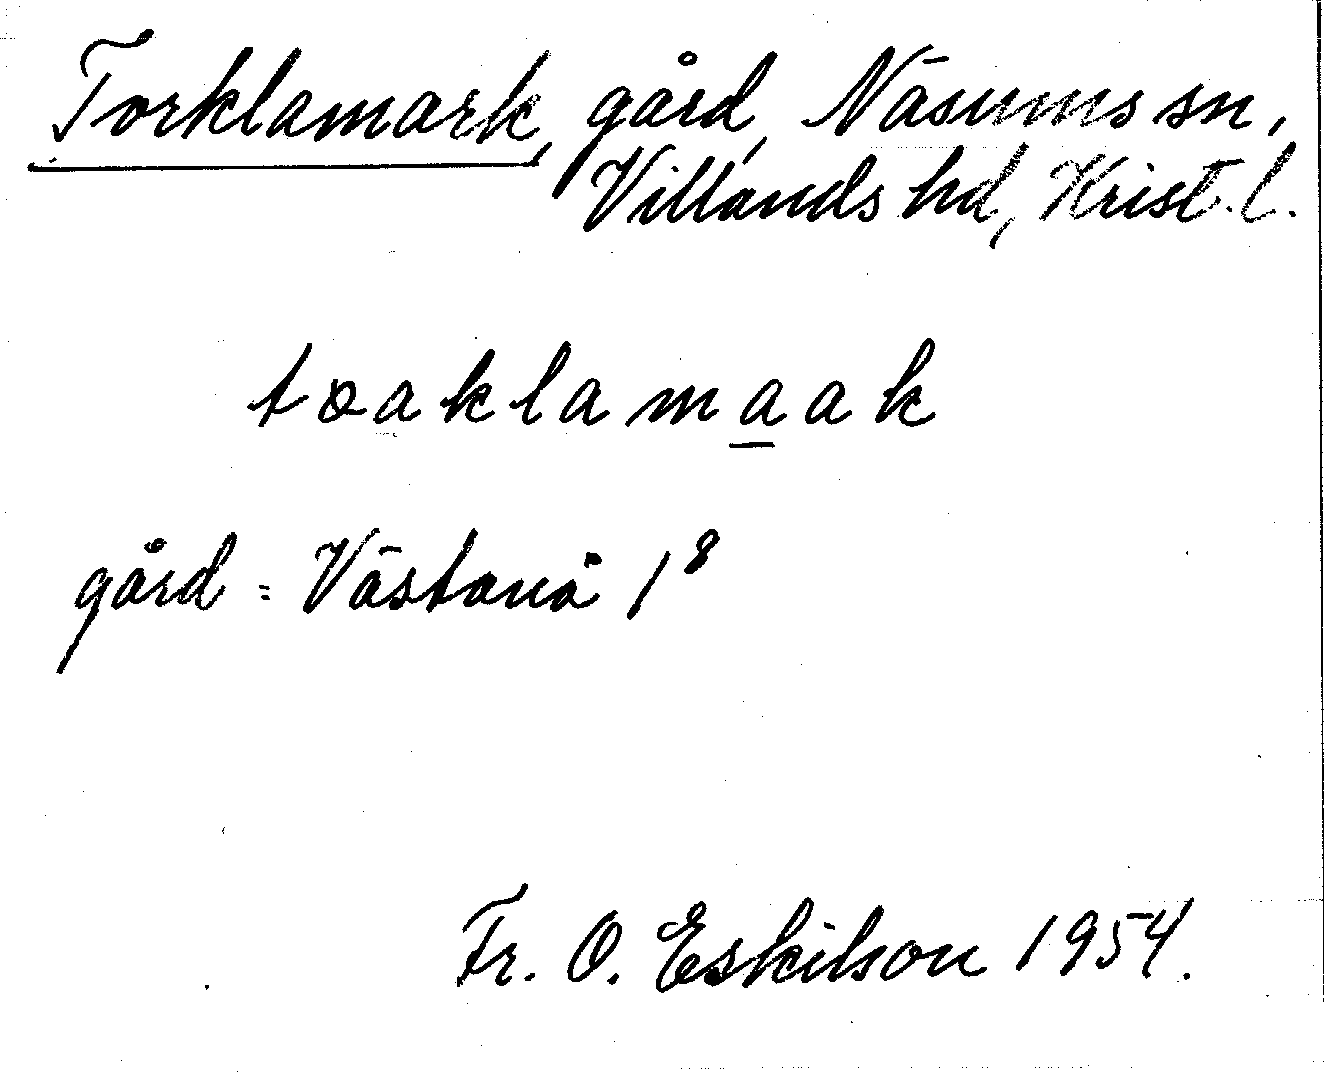 Torklamark, gård, Näsums sn,
Villands hd, Krist. l.
toaklamaak
gård = Västanå 1⁸
Fr. O. Eskilson 1954.